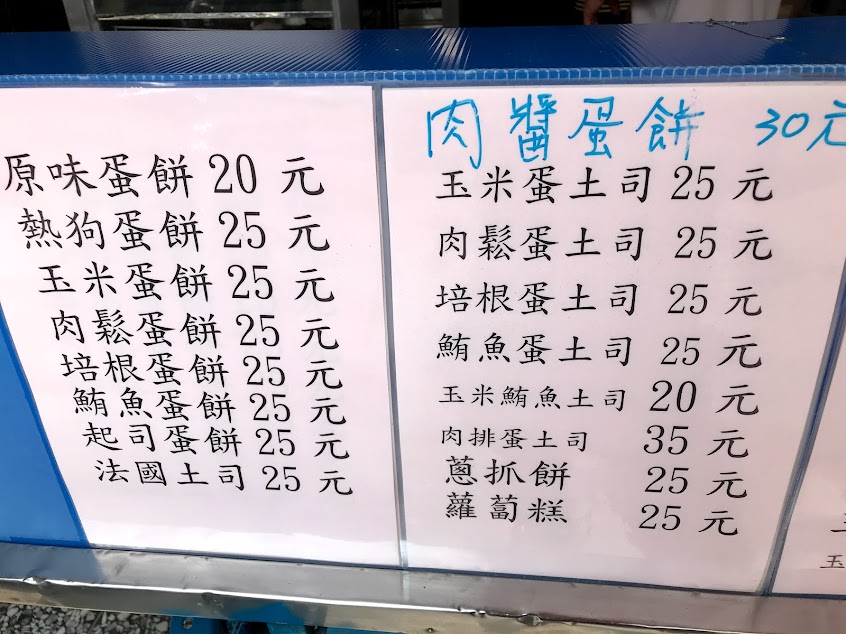 原味蛋餅 20 元
熱狗蛋餅 25 元
玉米蛋餅 25 元
肉鬆蛋餅 25 元
培根蛋餅 25 元
鮪魚蛋餅 25 元
起司蛋餅 25 元
法國土司 25 元
肉醬蛋餅 30元
玉米蛋土司 25 元
肉鬆蛋土司 25 元
培根蛋土司 25 元
鮪魚蛋土司 25 元
玉米鮪魚土司 20 元
肉排蛋土司 35 元
蔥抓餅 25 元
蘿蔔糕 25 元
玉